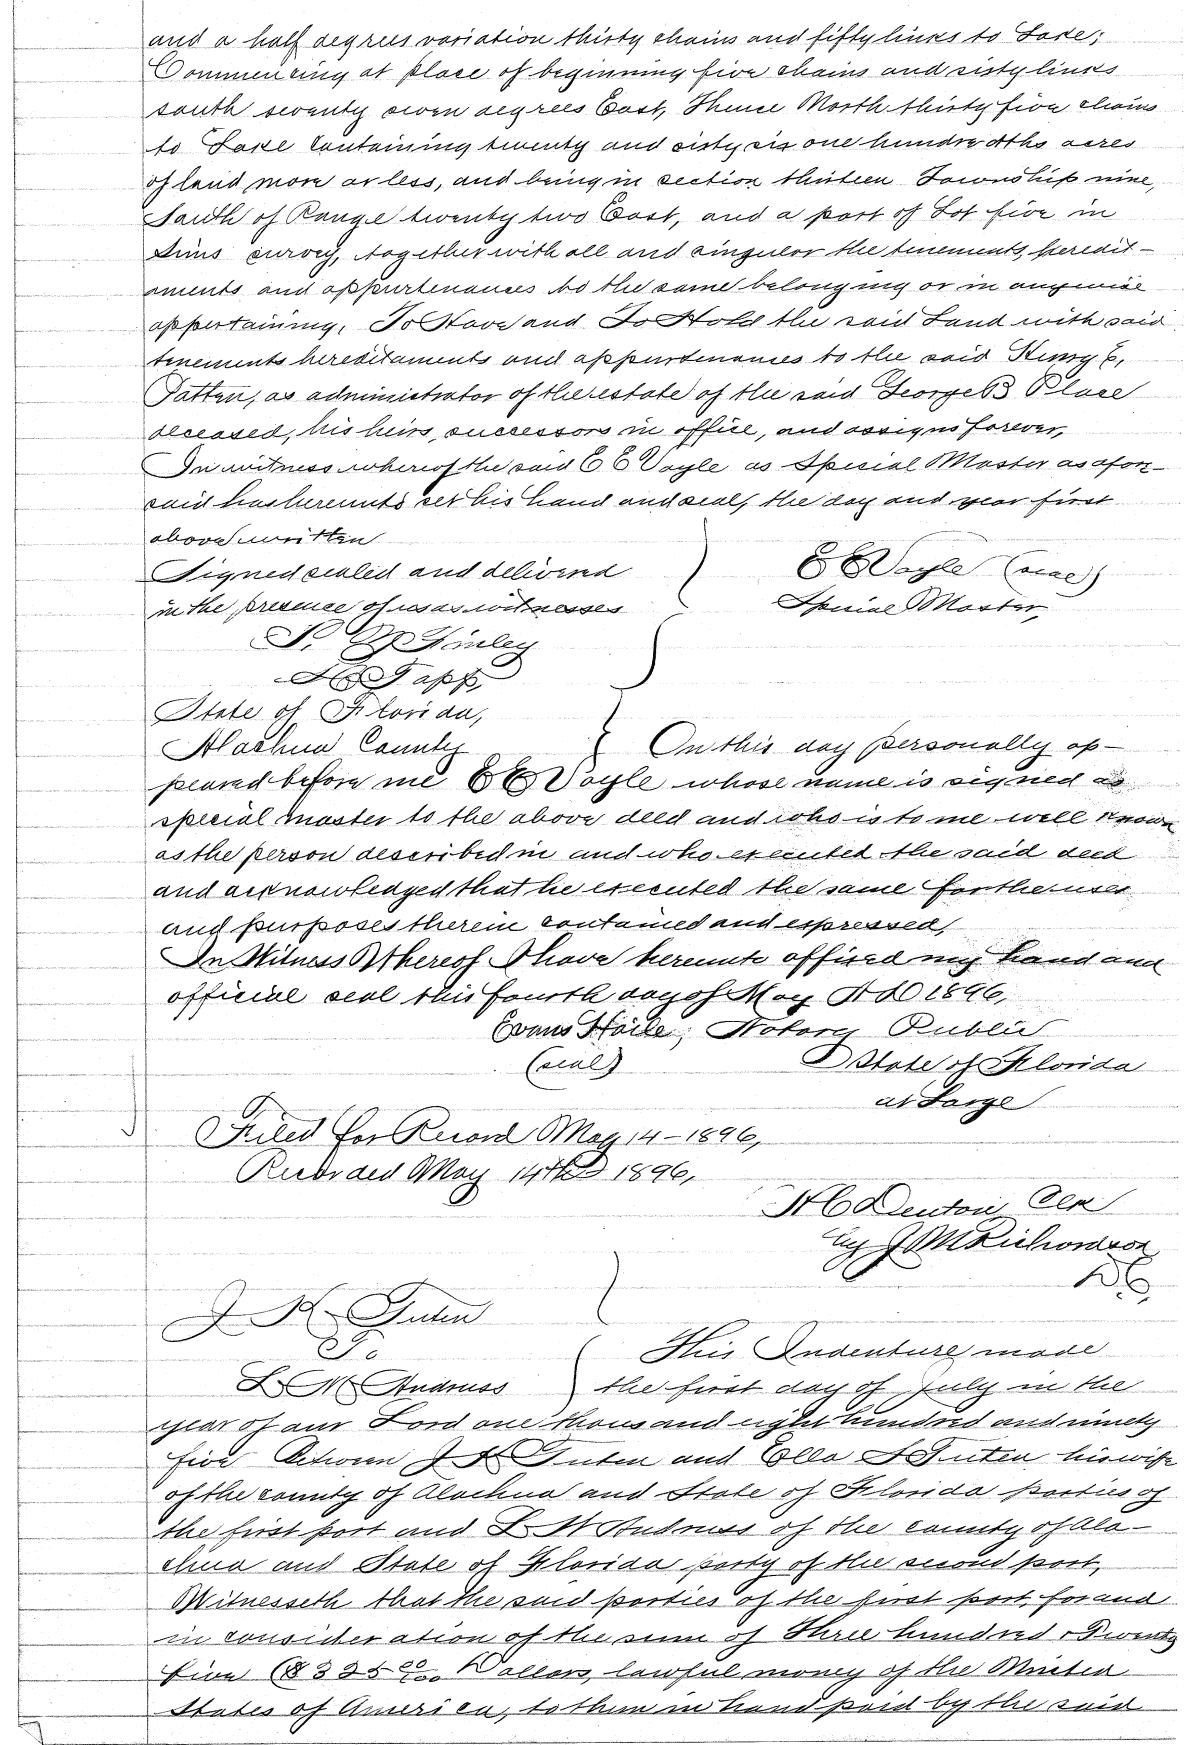 and a half degrees variation thirty chains and fifty links to Lake;
Commencing at place of beginning five chains and sixty links
south seventy seven degrees East, Thence North thirty five chains
to Lake Containing twenty and sixty six one hundredths acres
of land more or less, and being in section thirteen Township nine,
South of Range twenty two East, and a part of Lot five in
Sims survey, together with all and singular the tenements, heredit-
aments and appurtenances to the same belonging or in anywise
appertaining, To Have and To Hold the said Land with said
tenements hereditaments and appurtenances to the said Henry E,
Patten, as administrator of the estate of the said George B Place
deceased, his heirs, successors in office, and assigns forever,
In witness whereof the said E E Voyle as Special Master as afore-
said has hereunto set his hand and seal, the day and year first
above written
Signed sealed and delivered
in the presence of us as witnesses
E E Voyle (seal)
Special Master,
McKinley
Tapp,
State of Florida,
Alachua County
On this day personally ap-
peared before me E E Voyle whose name is signed as
special master to the above deed and who is to me well known
as the person described in and who executed the said deed
and acknowledged that he executed the same for the uses
and purposes therein contained and expressed,
In Witness Whereof I have hereunto affixed my hand and
official seal this fourth day of May A D 1896,
Evans Haile, Notary Public
(seal) State of Florida
at Large
Filed for Record May 14-1896,
Recorded May 14th 1896,
H C Denton Clk
by J M Richardson
D C,
J K Guten
To
L M Andruss
This Indenture made
the first day of July in the
year of our Lord one thousand eight hundred and ninety
five Between J K Guten and Ella Guten his wife
of the county of Alachua and State of Florida parties of
the first part and L M Andruss of the county of Ala-
chua and State of Florida party of the second part,
Witnesseth that the said parties of the first part, for and
in consideration of the sum of Three hundred & Twenty
five ($325 00 Dollars, lawful money of the United
States of America, to them in hand paid by the said